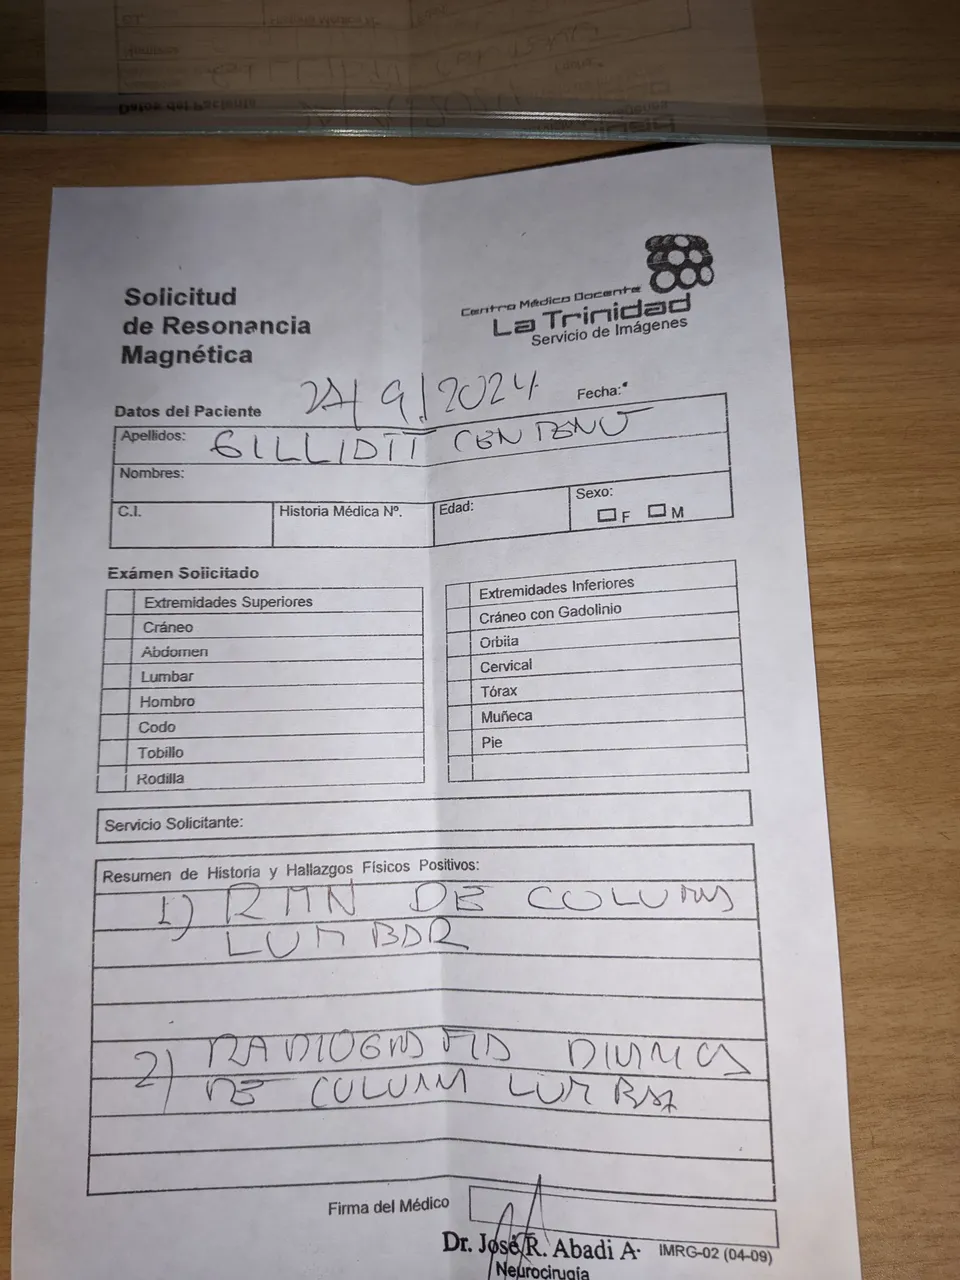 Solicitud
de Resonancia
Magnética
Centro Médico Docente
La Trinidad
Servicio de Imágenes
Datos del Paciente
/9/2024
Fecha:*
Apellidos: GILLIOTT CENTENO
Nombres:
C.I.
Historia Médica Nº.
Edad:
Sexo:
F M
Exámen Solicitado
Extremidades Superiores
Cráneo
Abdomen
Lumbar
Hombro
Codo
Tobillo
Rodilla
Extremidades Inferiores
Cráneo con Gadolinio
Orbita
Cervical
Tórax
Muñeca
Pie
Servicio Solicitante:
Resumen de Historia y Hallazgos Físicos Positivos:
1) RMN DE COLUMNA
LUMBAR
2) RADIOGRAFIA DINAMICA
DE COLUMNA LUMBAR
Firma del Médico
Dr. José R. Abadi A.
IMRG-02 (04-09)
Neurocirugía